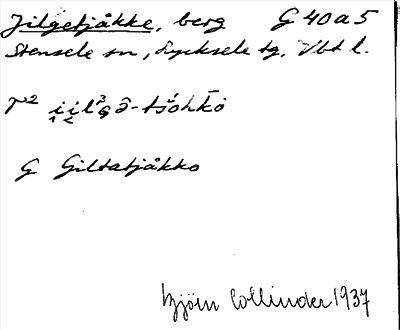 Jilgetjåkke, berg G 40 a 5
Stensele sn, Lycksele tg, Vbt l.
G Giltatjåkko
Björn Collinder 1937